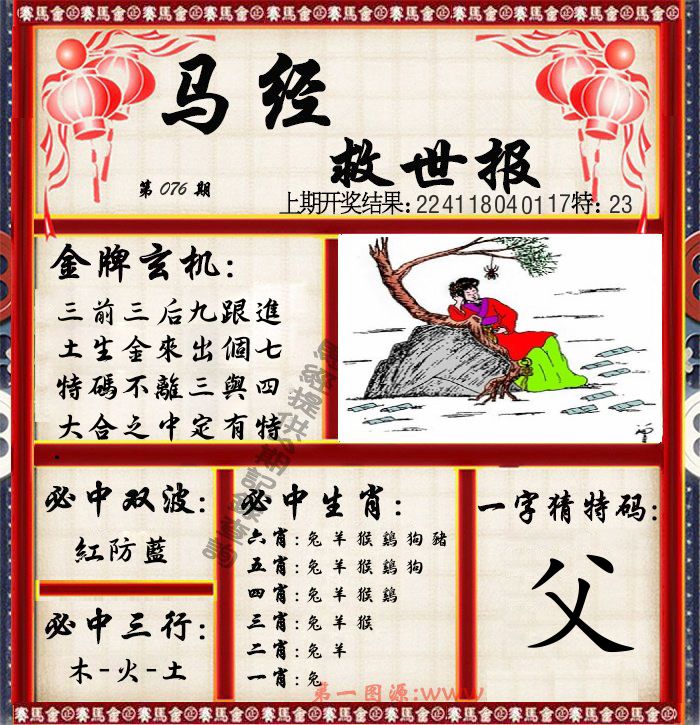 马经
救世报
第 076 期
上期开奖结果:224118040117特:23
金牌玄机:
三前三后九跟進
土生金來出個七
特碼不離三與四
大合之中定有特
必中双波:
紅防藍
必中三行:
木-火-土
必中生肖:
六肖:兔羊猴鷄狗豬
五肖:兔羊猴鷄狗
四肖:兔羊猴鷄
三肖:兔羊猴
二肖:兔羊
一肖:兔
一字猜特码:
父
第一图源:www